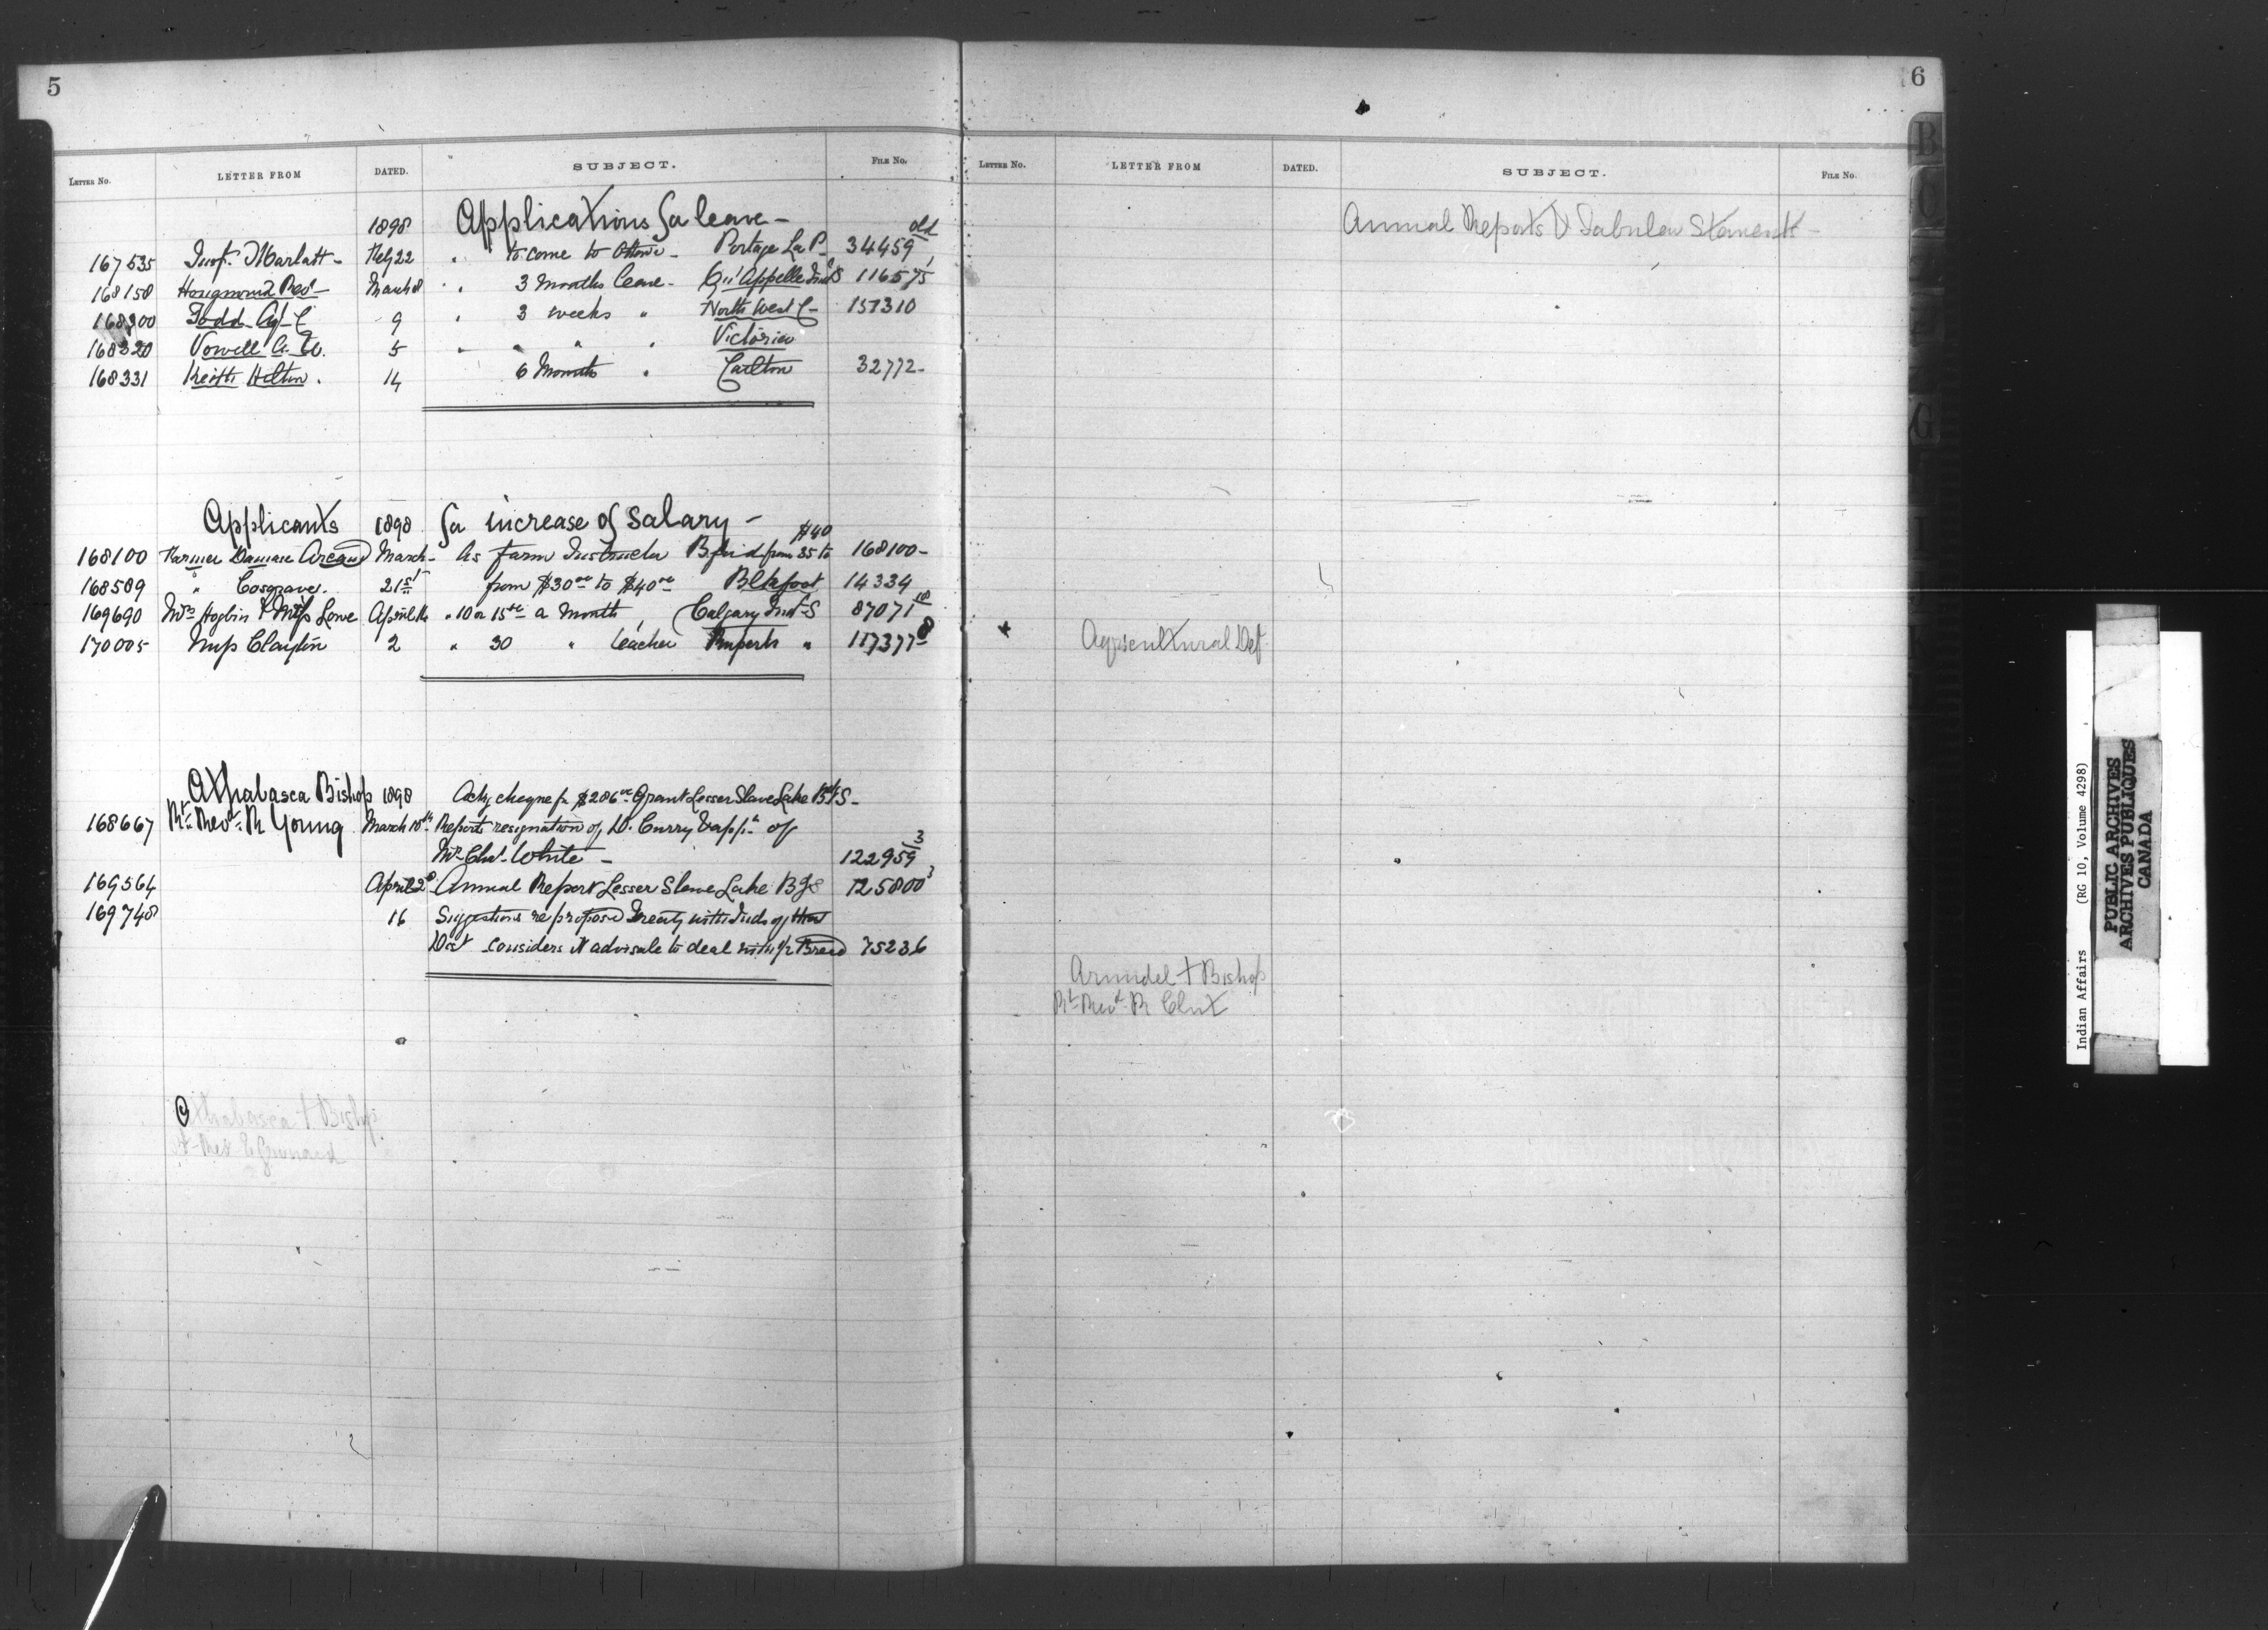 5
LETTER NO. LETTER FROM DATED. SUBJECT. FILE No.
1898 Applications for leave - old
167535 Insp. Marlatt - Feby 22 " to come to Ottawa - Portage La P. 34459
168158 Hougnound Rev - March 8 " " 3 Months leave - Qu'Appelle Ind S 116575
168300 Todd Agt C 9 " 3 weeks " North West C - 157310
168320 Vowell A. W. 5 " " " " Victoria
168331 Keith Hilton. 14 6 Months " Carlton 32772 -
Applicants 1898 for increase of Salary - $40
168100 Farmer Damase Arcand March - As farm Instructor Bfrd from 35 to 168100 -
168589 " Cosgrave. 21st from $30 00 to $40 00 Blkfoot 14334
169690 Mrs Hogbin & Miss Lowe April 14 " 10 or 15 00 a Month, Calgary Ind S 87071 18
170005 Miss Clayton 2 " 30 " teacher Ruperts " 117377 8
Athabasca Bishop 1898 Ackg cheque for $286 00 Grant Lesser Slave Lake Bdg S -
168667 Rt. Revd. R Young March 18th Reports resignation of D. Curry & appt. of
Mr Chs. White - 122959 3
169564 April 2d Annual Report Lesser Slave Lake B S 125800 3
169748 16 Suggestions re proposed Treaty with Inds of that
Dist considers it advisable to deal with 75236
Athabasca + Bishop
Rt Rev E Grouard
6
LETTER NO. LETTER FROM DATED. SUBJECT. FILE No.
Annual Reports & Tabular Stements -
Agricultural Det.
Arundel + Bishop
Rt Revd. R Clut
B
C
G
Indian Affairs (RG 10, Volume 4298)
PUBLIC ARCHIVES
ARCHIVES PUBLIQUES
CANADA